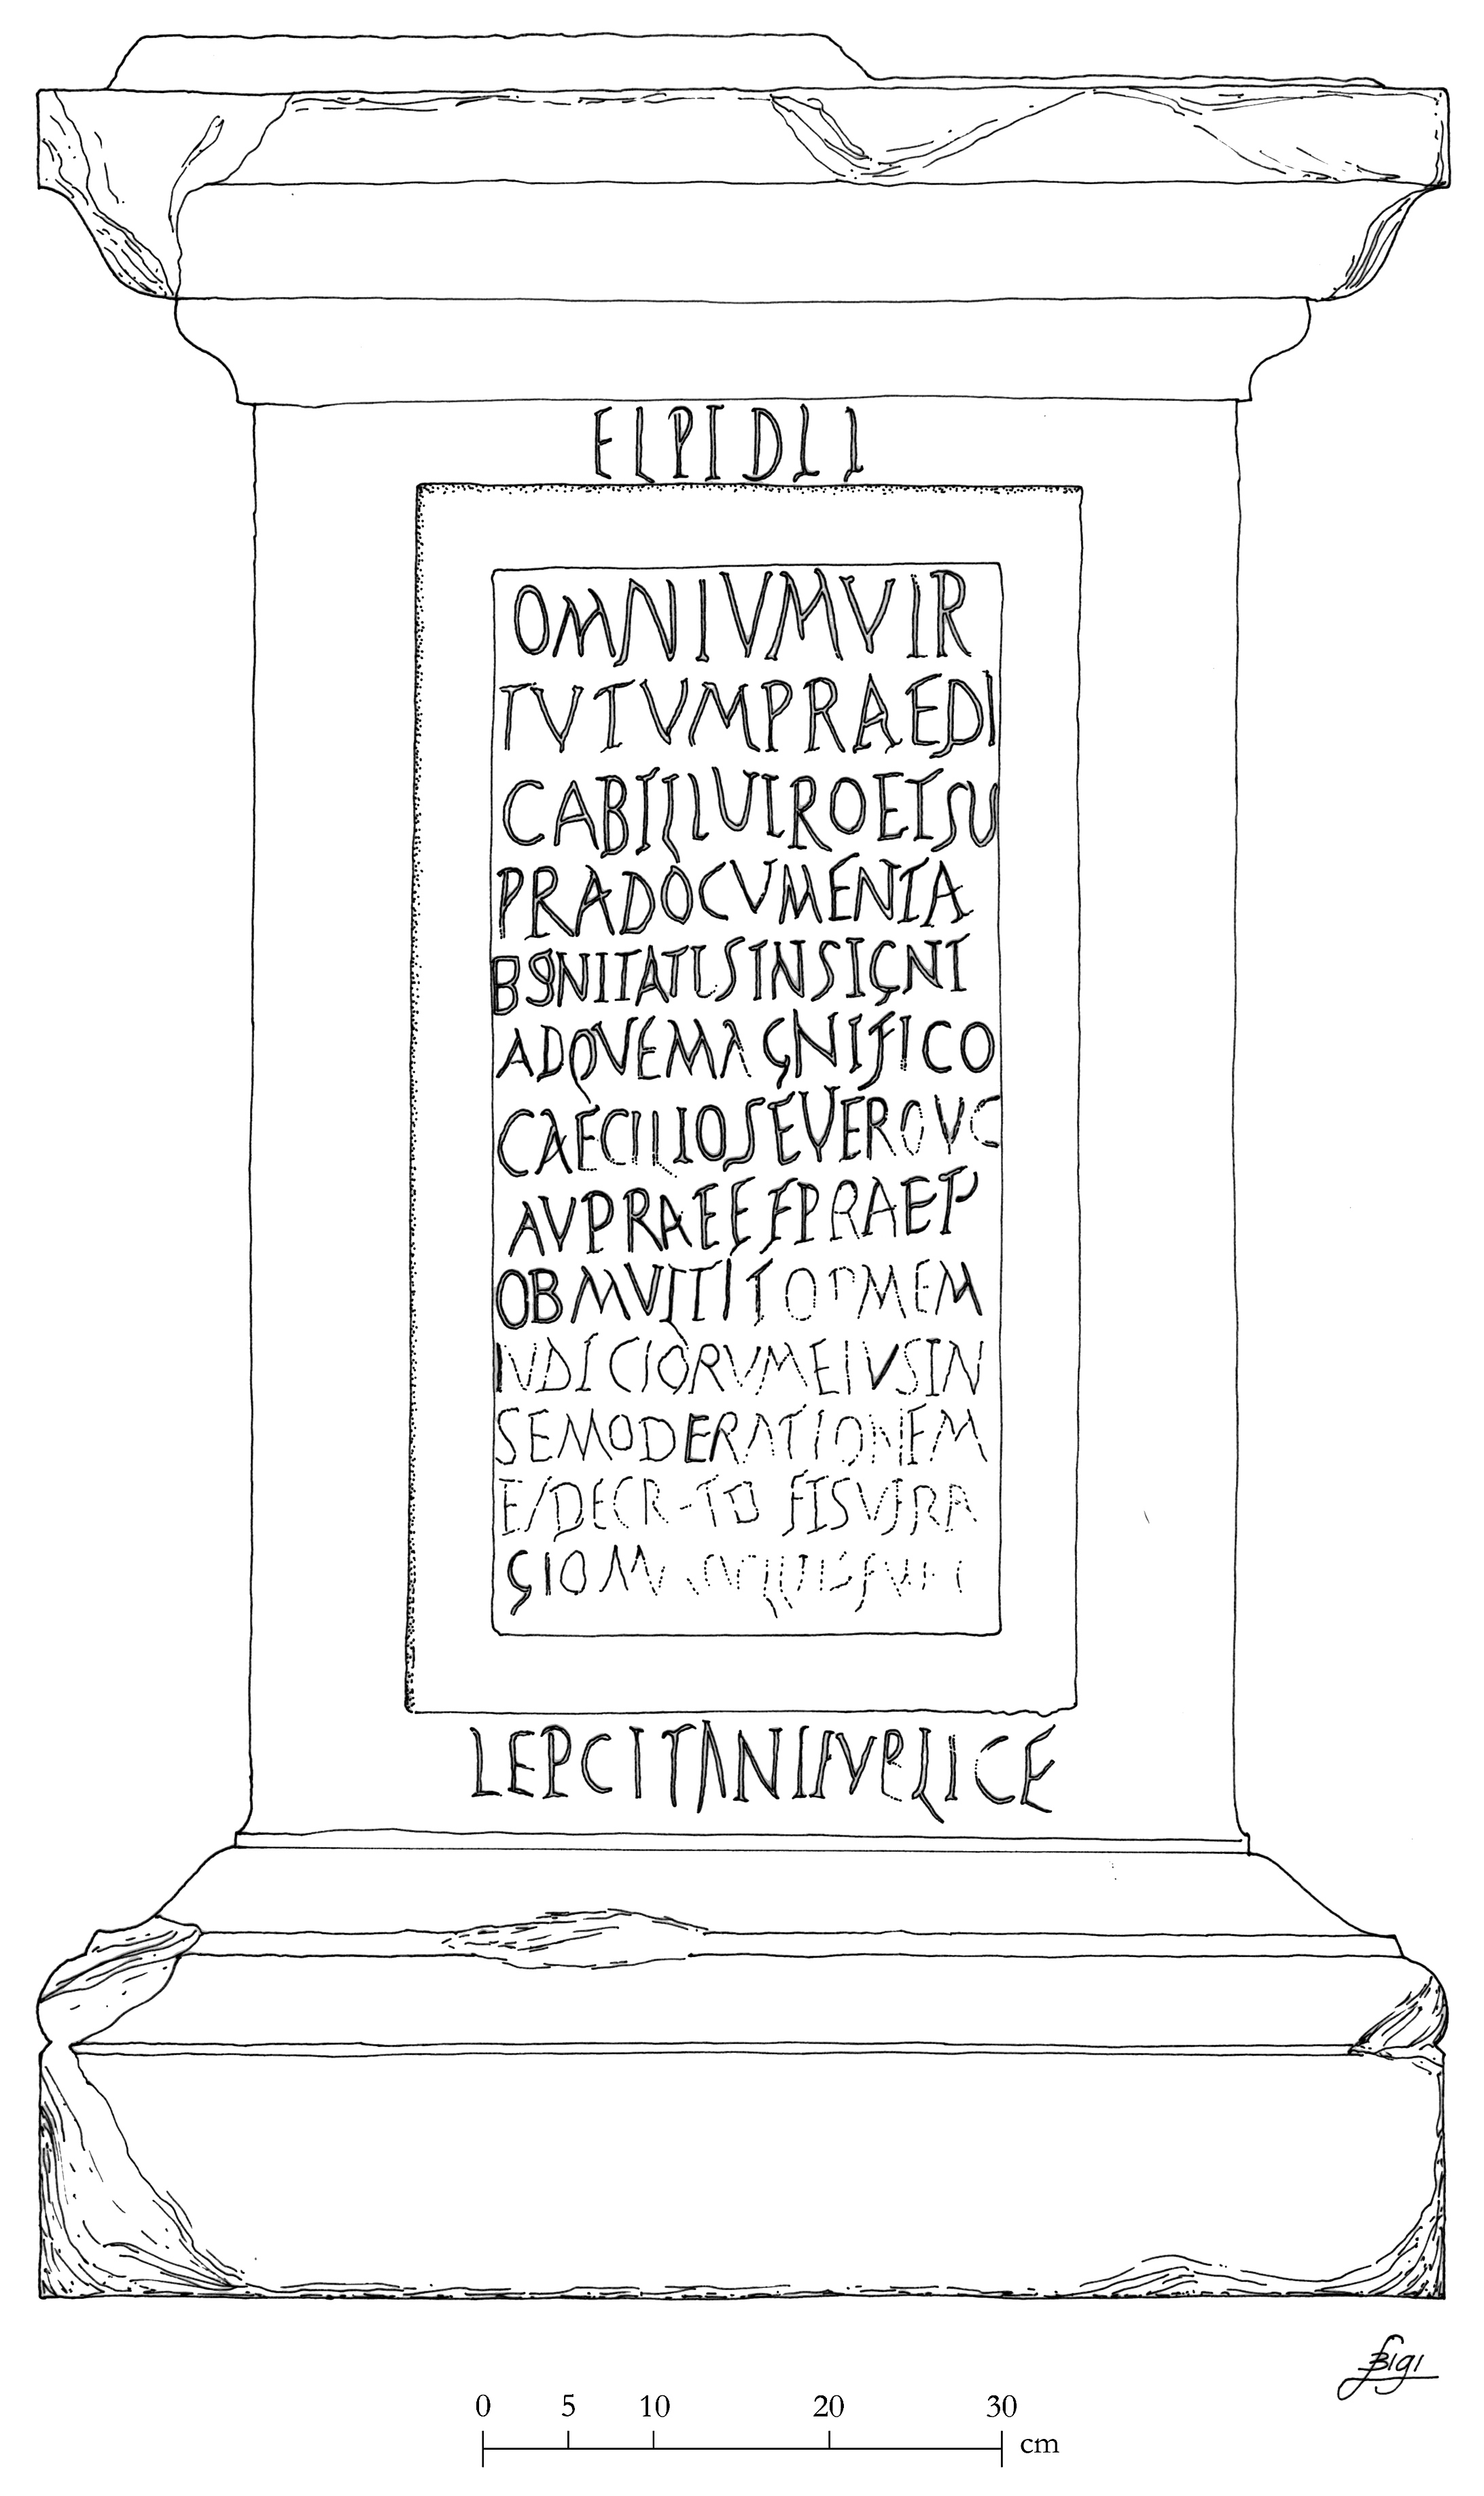 ELPIDLI
OMNIVMVIR
TVTVMPRAEDI
CABILLVIROETSU
PRADOCVMENTA
BONITATISINSIGNI
ADQVEMAGNIFICO
CAECILIOSEVEROVC
AVPRAEEFPRAET
OBMVITITOTMEM
IVDICIORVMEIVSIN
SEMODERATIONEM
LEPCITANIPVBLICE
Bigi
0 5 10 20 30 cm